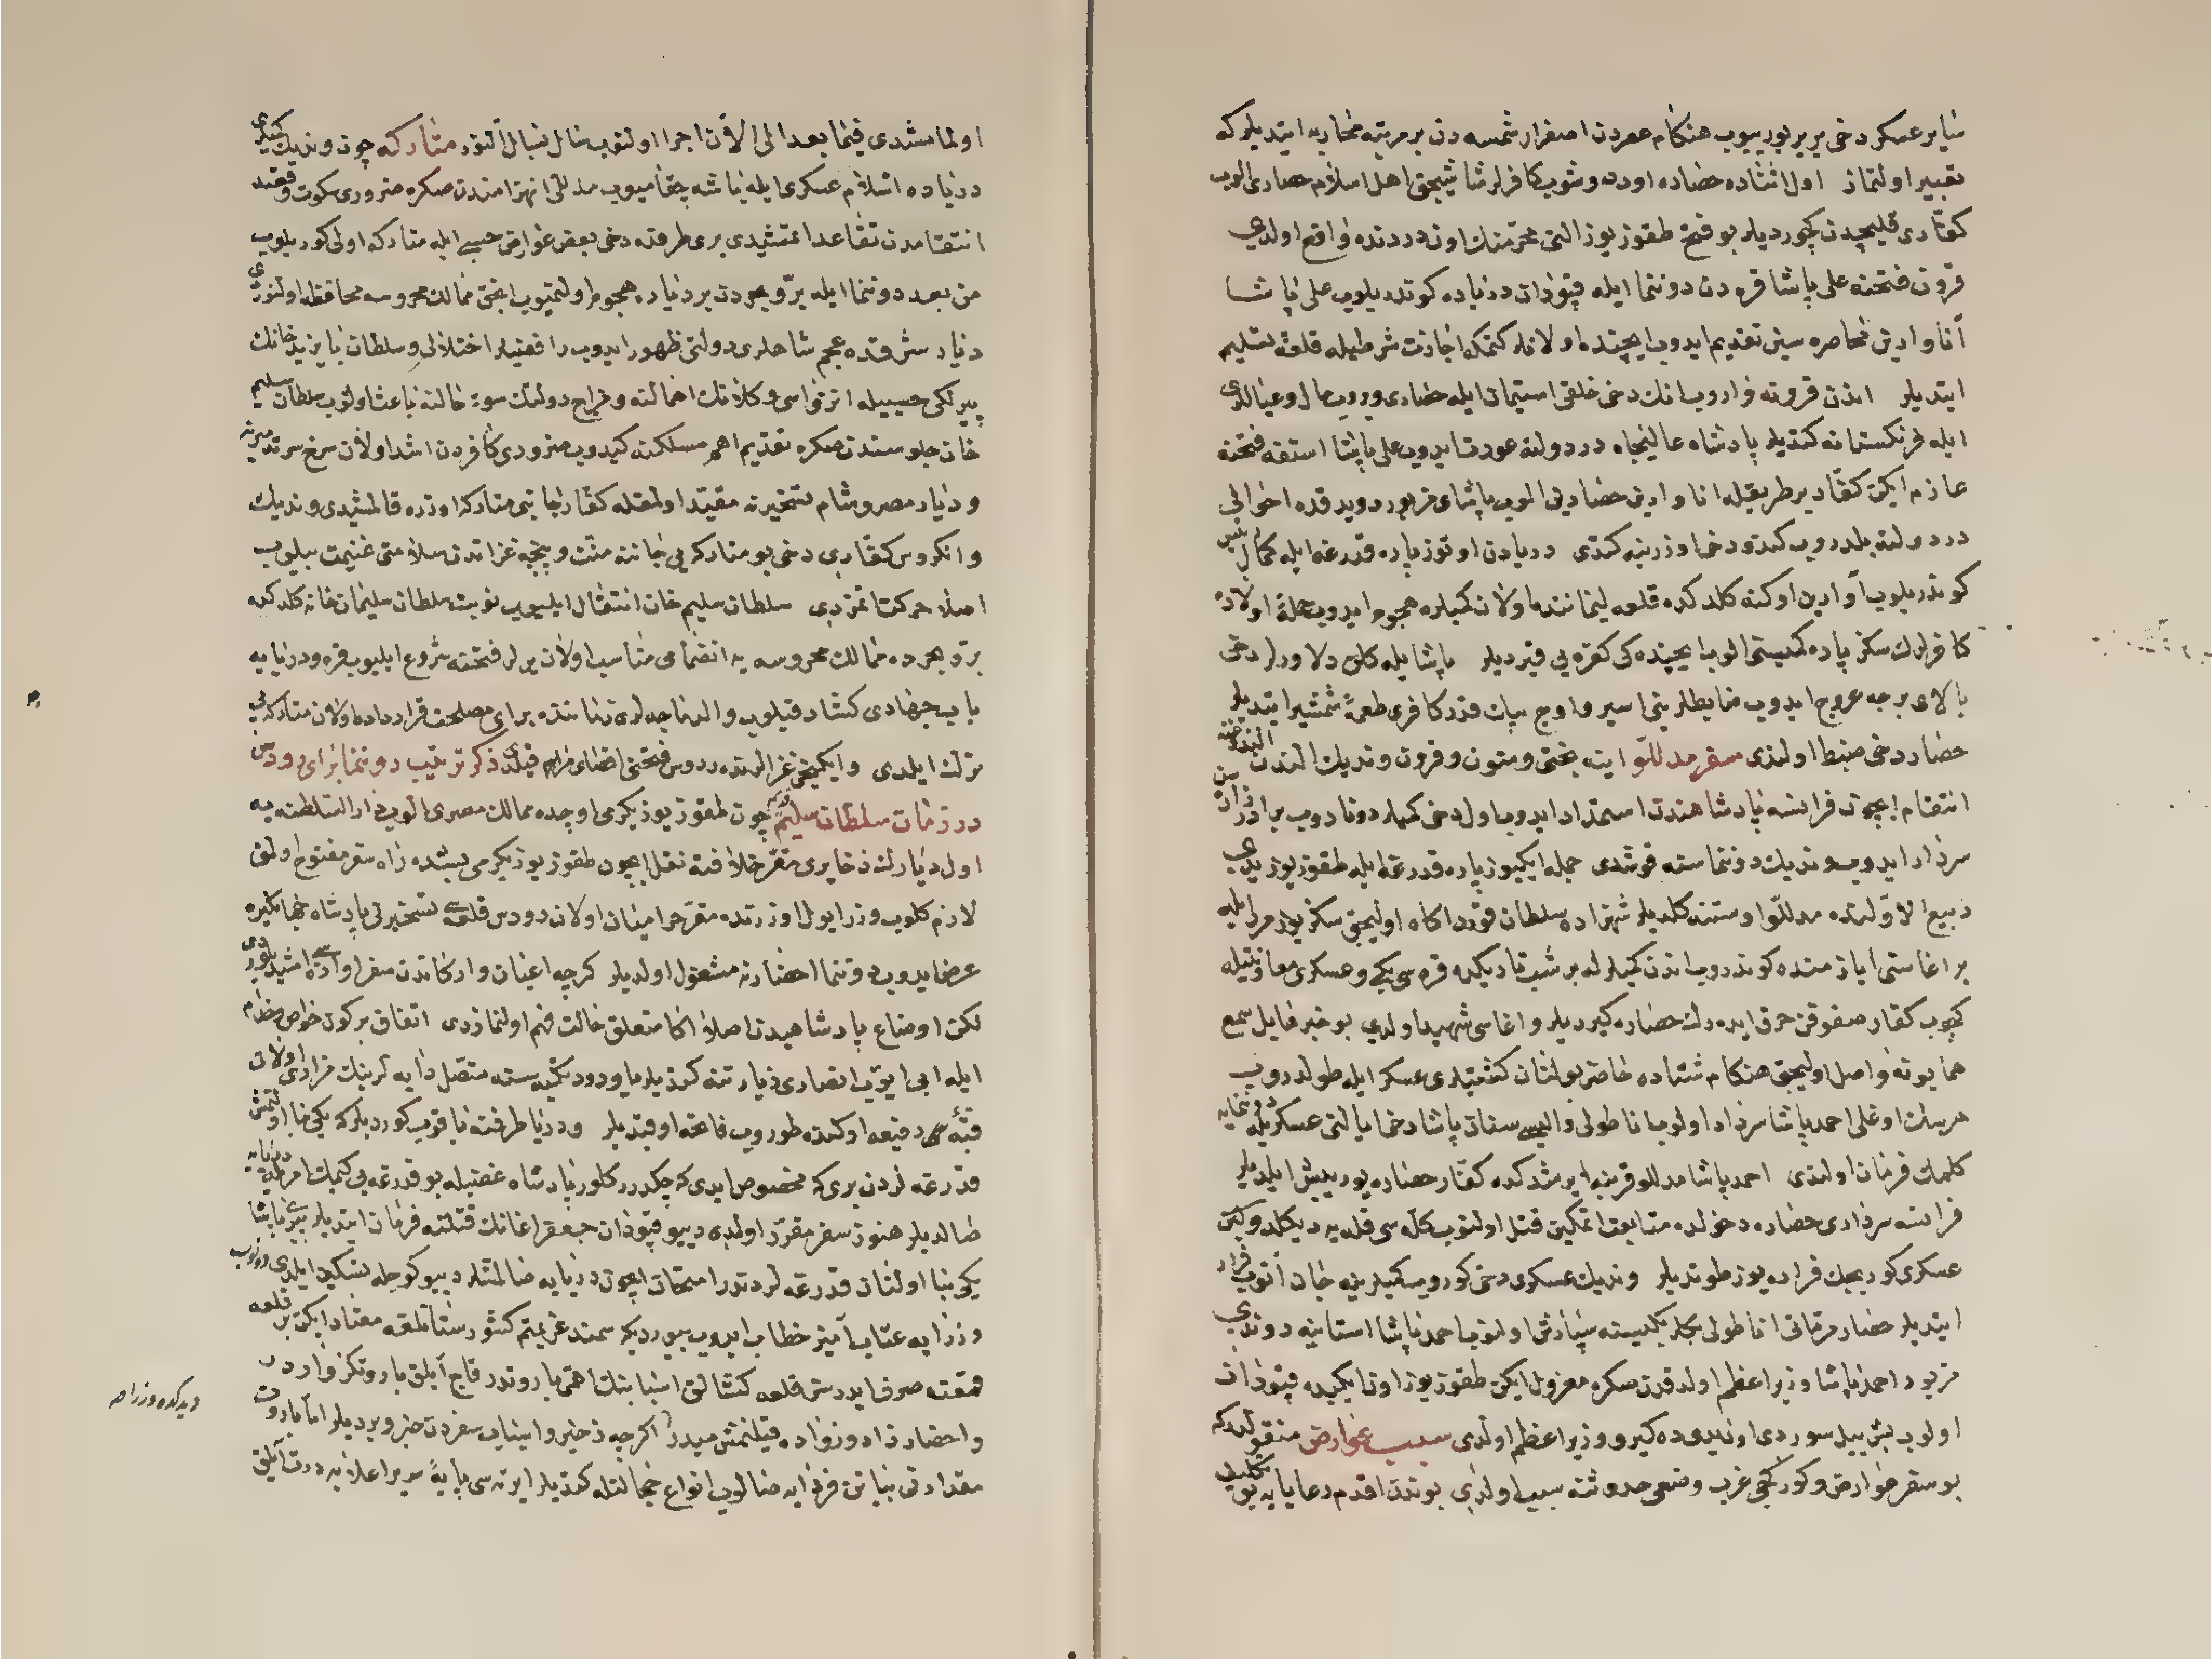 سایر عسکر دخی بر بر یوریوب هنکام عصردن اصفرار شمسه دن بر مرتبه محاربه ایتدیلر که
تعبیر اولنماز اول اثناده حصاره اود دوشوب کافرلر شاشیجق اهل اسلام حصاری الوب
کفّاری قلیچدن کچوردیلر بو فتح طقوز یوز التی محرّمنك اون دردنده واقع اولدی
قرون فتحنه علی پاشا قره دن دوننما ایله قپودان دریاده کوندریلوب علی پاشا
آناوارین محاصره سین تقدیم ایدوب ایچنده اولانلر کتمکه اجازت شرطیله قلعه تسلیم
ایتدیلر اندن قرونه واروب انك دخی خلقی استیمان ایله حصاری ویروب مال و عیاللری
ایله فرنکستانه کتدیلر پادشاه عالیجاه در دولته عودت ایدوب علی پاشا استفه فتحنه
عازم ایکن کفّار بر طریقله اناوارین حصارینی الوب پاشای مزبور دوید قده احوالی
در دولته بلدروب کندو دخی اوزرینه کتدی دریادن اوتوز پاره قدرغه ایله کمال رئیس
کوندریلوب آوارین اوکنه کلدکده قلعه لیماننده اولان کمیلره هجوم ایدوب جمله اولاده
کافرلرك سکز پاره کمیسنی الوب ایچنده کی کفره یی قیردیلر پاشا ایله کلن دلاورلر دخی
بالای برجه عروج ایدوب ضابطلرینی اسیر و اوچ بیك قدر کافری طعمهٔ شمشیر ایتدیلر
حصار دخی ضبط اولندی سفر مدللّو اینه بختی و متون و قرون وندیك الندن الندوغنه
انتقام ایچون فرانسه پادشاهندن استمداد ایدوب اول دخی کمیلر دونادوب برادرزاده سن
سردار ایدوب وندیك دوننماسنه قوشدی جمله ایکیوز پاره قدرغه ایله طقوز یوز یدی
ربیع الاوّلنده مدللّو اوستنه کلدیلر شهزاده سلطان قورد اکاه اولیجق سکز یوز مرد ایله
بر اغاسنی ایازمنده کوندروب اندن کمیلر له بر شب تاریکده قره سی بکی و عسکری معاونتیله
کچوب کفّار صفوفن خرق ایده رك حصاره کیردیلر و اغاسی شهید اولدی بو خبر هایل سمع
همایونه واصل اولیجق هنکام شتاده حاضر بولنان کشتیلری عسکر ایله طولدروب
هرسك اوغلی احمد پاشا سردار اولوب اناطولی والیسی سنان پاشا دخی ایالتی عسکریله دوننمایه
کلمك فرمان اولندی احمد پاشا مدللو قربنه ایرشدکده کفّار حصاره یوریش ایلدیلر
فرانسه سرداری حصاره دخولده متابعت اتمکین قتل اولنوب کلّه سی قله یه دیکلدوکین
عسکری کوریجك فراره یوز طوتدیلر وندیك عسکری دخی کوروب کمیلرینه جان آتوب فرار
ایتدیلر حصار مرمّاتی اناطولی بکلربکیسنه سپارش اولنوب احمد پاشا استانبوله دوندی
مزبور احمد پاشا وزیر اعظم اولدقدن سکره معزول ایکن طقوز یوز اون ایکیده قپودان
اولوب بش ییل سوردی اون یدیده کیرو وزیر اعظم اولدی سبب عوارض منقولدر که
بو سفر عوارض و کورکجی غرب وضعی حدوثنه سبب اولدی بوندن اقدم رعایایه بو تکلیف
اولنمامشدی فیما بعد الی الآن اجرا اولنوب سال بسال آلنور متارکه چون وندیك کمیلری
دریاده اسلام عسکری ایله باشه چقمایوب مدللّی انهزامندن صکره ضروری سکوت وقعنده
انتقامدن تقاعد اتمشیدی بری طرفده دخی بعض عوارض حسبی ایله متارکه اولی کوریلوب
من بعد دوننما ایله برّ و بحردن بر دیاره هجوم اولنمیوب انجق ممالك محروسه محافظه اولنوردی
دیار شرقده عجم شاهلری دولتی ظهور ایدوب رافضیلر اختلالی و سلطان بایزید خانك
پیرلکی حسبیله انزواسی وکلانك اهمالنه و مزاج دولتك سوء حالنه باعث اولوب سلطان سلیم
خان جلوسندن صکره تقدیم اهم مسلکنه کیدوب ضروری کافردن اشد اولان سرخ سر تدمیرینه
و دیار مصر و شام تسخیرینه مقیّد اولمغله کفّار جانبی متارکه اوزره قالمشیدی وندیك
و انکروس کفّاری دخی بو متارکه یی جاننه منّت و پنجهٔ غزاتدن سلامتی غنیمت بیلوب
اصلا حرکت اتمزدی سلطان سلیم خان انتقال ایلیوب نوبت سلطان سلیمان خانه کلدکده
برّ و بحرده ممالك محروسه یه انضمامی مناسب اولان یرلر فتحنه شروع ایلیوب قره و دریایه
باب جهادی کشاد قیلوب والد ماجدلری زماننده برای مصلحت قرارداده اولان متارکه یی
ترك ایلدی و ایکیجی غزالرنده ردوس فتحنی اقصای مرام قیلدی ذکر ترتیب دوننما برای رودس
در زمان سلطان سلیم قدیم چون طقوز یوز یکرمی اوچده ممالك مصری الوب دار السلطنه یه
اول دیارك ذخایری مقرّ خلافته نقل ایچون طقوز یوز یکرمی بشده راه سفر مفتوح اولمق
لازم کلوب وزرا یول اوزرنده مقرّ حرامیان اولان رودس قلعه سی تسخیرنی پادشاه جهانکیره
عرض ایدوب دوننما احضارنه مشغول اولدیلر کرچه اعیان و ارکاندن سفر آوازه سی اشیدیلوردی
لکن اوضاع پادشاهیدن اصلا اکا متعلق حالت فهم اولنمازدی اتفاق بر کون خواص خدّام
ایله ابی ایّوب انصاری زیارتنه کتدیلر یاودود تکیه سنه متّصل دایه لرینك مزاری اولان
قبّهٔ رفیعه اوکنده طوروب فاتحه اوقدیلر و دریا طرفنه باقوب کوردیلر که یکی بنا اولنمش
قدرغه لردن بری که مخصوص ایدی که چکدرر کلور پادشاه غضبله بو قدرغه یی کیمك امریله دریایه
صالدیلر هنوز سفر مقرّر اولمدی دییو قپودان جعفر اغانك قتلنه فرمان ایتدیلر پیری پاشا
یکی بنا اولنان قدرغه لردندر امتحان ایچون دریایه صالمشلر دییو کوجله تسکین ایلدی دونوب
وزرایه عتاب آمیز خطاب ایدوب بیوردیکه سمند عزیمتم کشورستانلغه معتاد ایکن بر قلعه
فتحنه صرف ایدرسز قلعه کشالق اسبابنك اهمّی باروتدر قاچ آیلق باروتکز واردر
و احضار زاد و زواده قیلنمش میدر اکرچه ذخیره و اسباب سفردن خبر ویردیلر امّا باروت
مقدارنی بیان فردایه صالوب انواع خجالتله کتدیلر ایرته سی پایهٔ سریر اعلایه درت آیلق
دیدکده وزرا